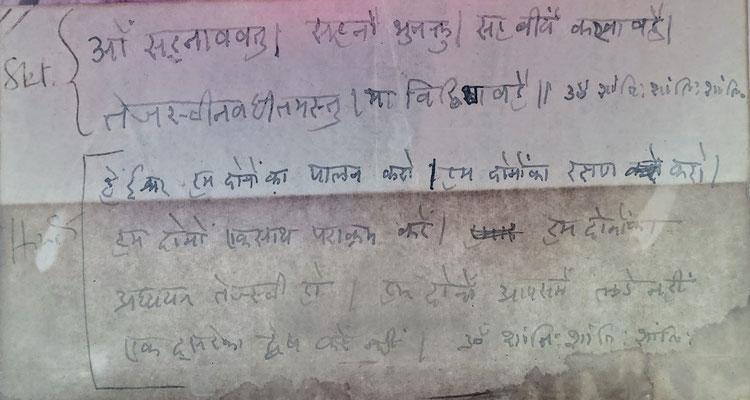 Skt. ओं सहनाववतु। सहनौ भुनक्तु। सह वीर्यं करवावहै।
तेजस्वीनवधीतमस्तु। मा विद्विषावहै॥ ॐ शांतिः शांतिः शांतिः
हे ईश्वर हम दोनों का पालन करो। हम दोनोंका रक्षण करो।
हम दोनों एकसाथ पराक्रम करें। हम दोनोंका
अध्ययन तेजस्वी हो। हम दोनों आपसमें लडे नहीं
एक दूसरेका द्वेष करें नहीं। ॐ शांतिः शांतिः शांतिः